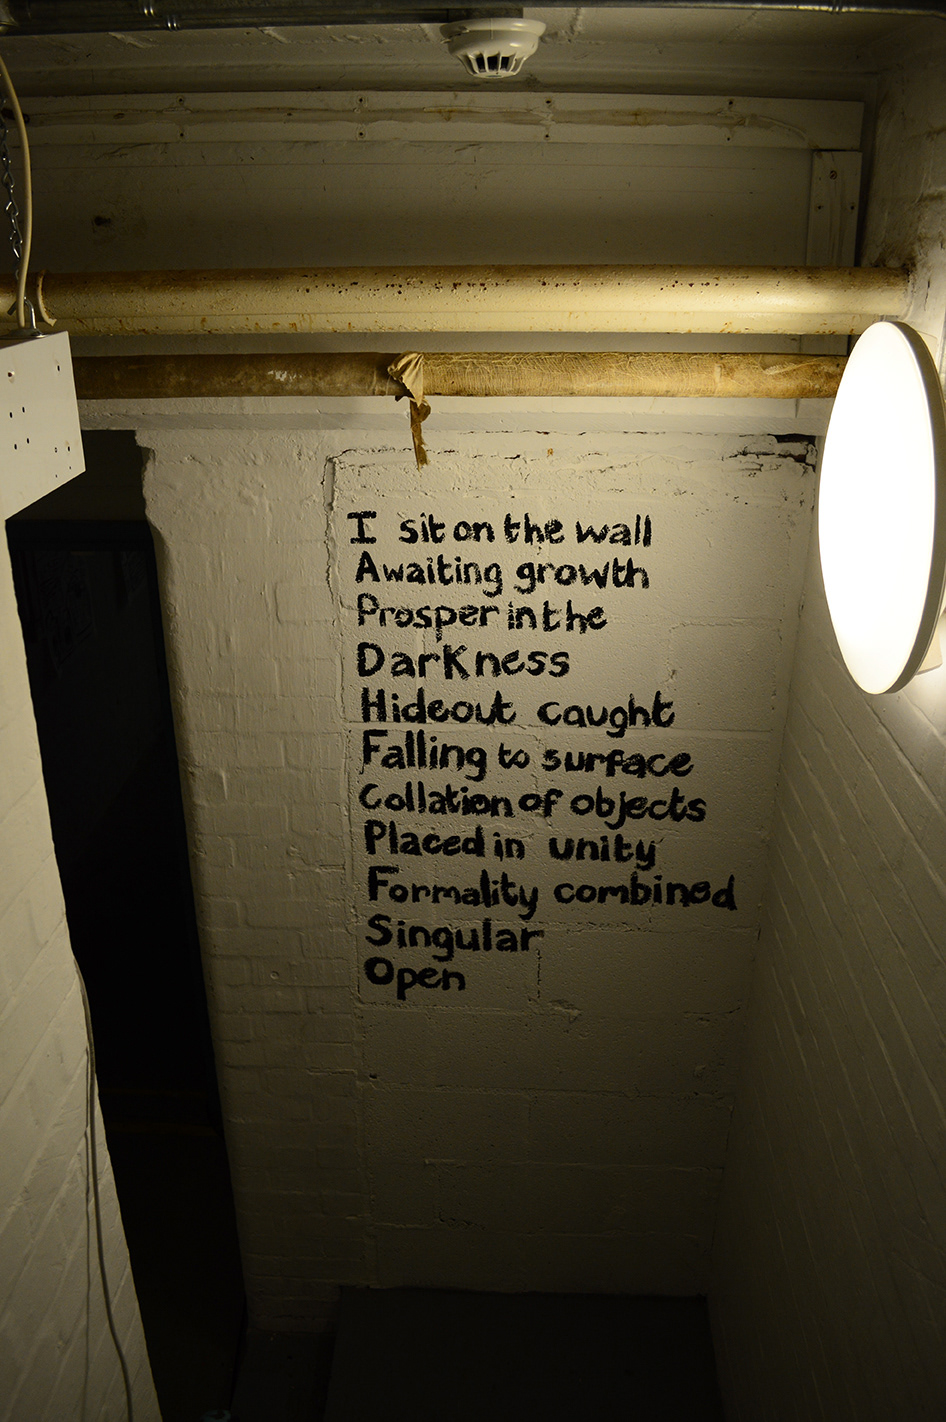 I sit on the wall
Awaiting growth
Prosper in the
Darkness
Hideout caught
Falling to surface
Collation of objects
Placed in unity
Formality combined
Singular
Open